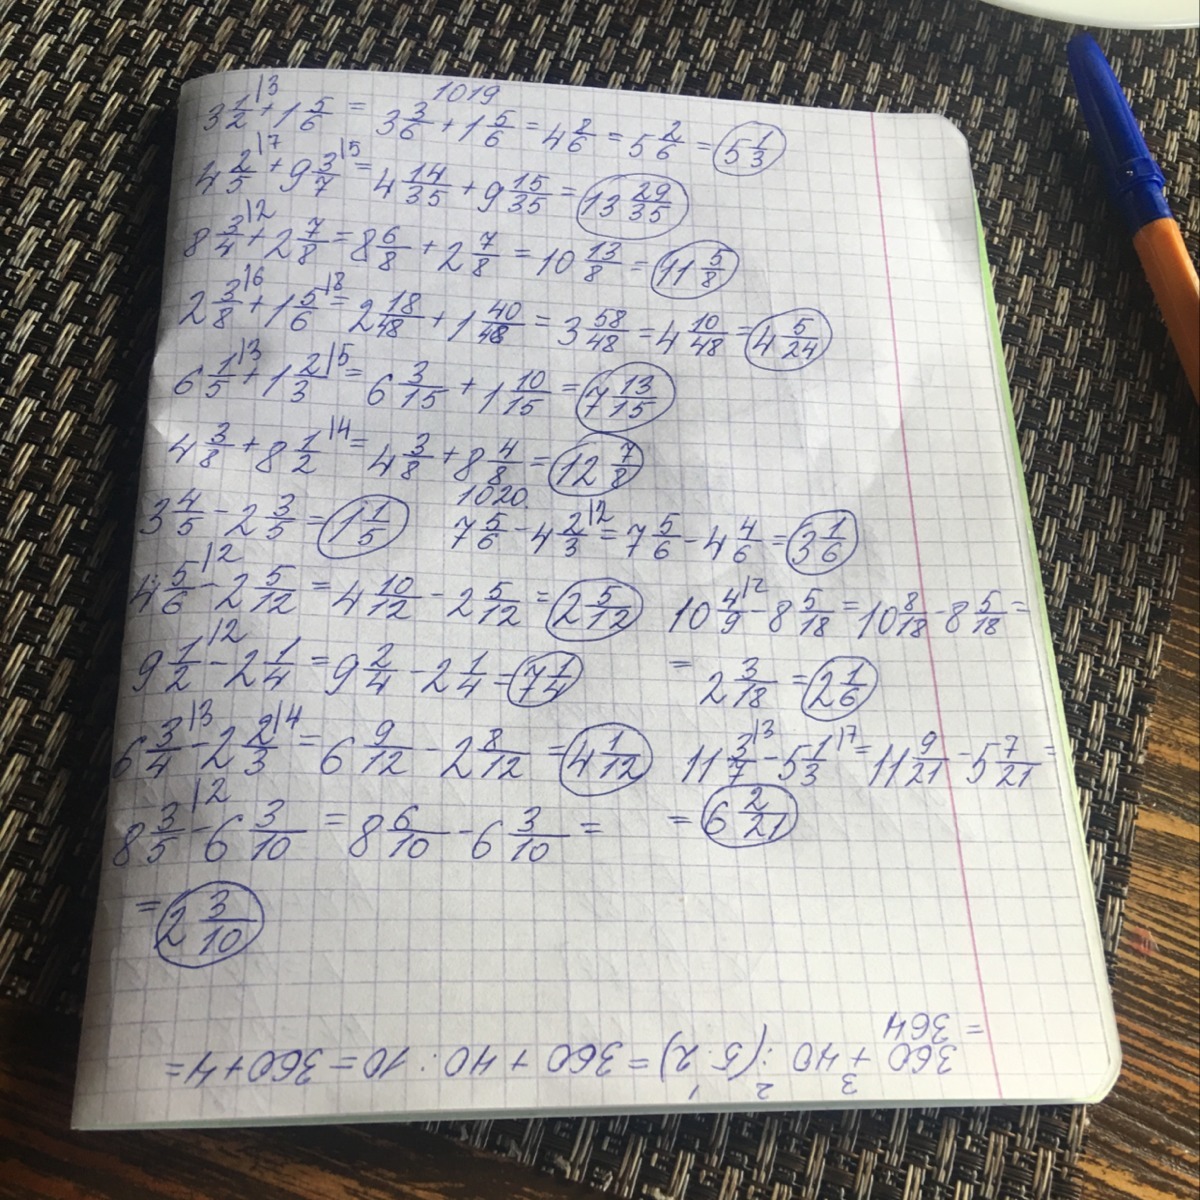 1019
3 1/2 |3 + 1 5/6 = 3 3/6 + 1 5/6 = 4 8/6 = 5 2/6 = 5 1/3
4 2/5 |7 + 9 3/7 |5 = 4 14/35 + 9 15/35 = 13 29/35
8 3/4 |2 + 2 7/8 = 8 6/8 + 2 7/8 = 10 13/8 = 11 5/8
2 3/8 |6 + 1 5/6 |8 = 2 18/48 + 1 40/48 = 3 58/48 = 4 10/48 = 4 5/24
6 1/5 |3 + 1 2/3 |5 = 6 3/15 + 1 10/15 = 7 13/15
4 3/8 + 8 1/2 |4 = 4 3/8 + 8 4/8 = 12 7/8
1020.
3 4/5 - 2 3/5 = 1 1/5
7 5/6 - 4 2/3 |2 = 7 5/6 - 4 4/6 = 3 1/6
4 5/6 |2 - 2 5/12 = 4 10/12 - 2 5/12 = 2 5/12
10 4/9 |2 - 8 5/18 = 10 8/18 - 8 5/18 =
= 2 3/18 = 2 1/6
9 1/2 |2 - 2 1/4 = 9 2/4 - 2 1/4 = 7 1/4
6 3/4 |3 - 2 2/3 |4 = 6 9/12 - 2 8/12 = 4 1/12
11 3/7 |3 - 5 1/3 |7 = 11 9/21 - 5 7/21 =
= 6 2/21
8 3/5 |2 - 6 3/10 = 8 6/10 - 6 3/10 =
= 2 3/10
1 2 3
360 + 40 : (5·2) = 360 + 40 : 10 = 360 + 4 =
= 364